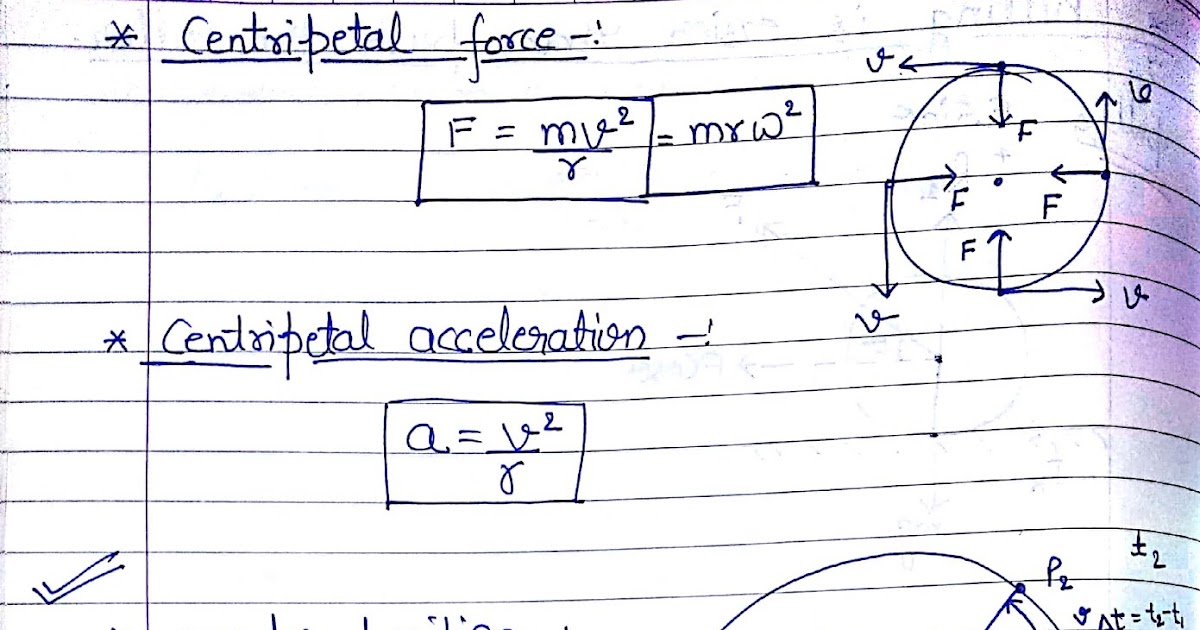 * Centripetal force -:
F = mv²/r = mrω²
v
v
F
F
F
F
v
v
* Centripetal acceleration -:
a = v²/r
t₂
P₂
v Δt = t₂-t₁